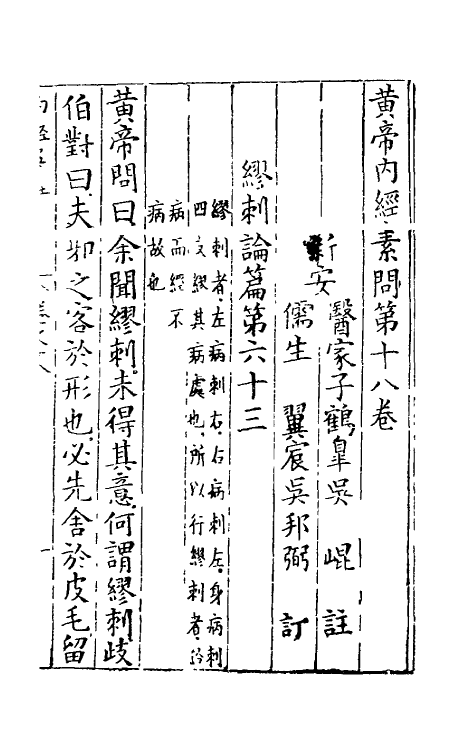 黃帝內經素問第十八卷
新安
醫家子鶴臯吳 崐 註
儒生 翼宸吳邦弼 訂
繆刺論篇第六十三
繆刺者左病刺右右病刺左身病刺
四支繆其病處也所以行繆刺者絡
病而經不
病故也
黃帝問曰余聞繆刺未得其意何謂繆刺岐
伯對曰夫邪之客於形也必先舍於皮毛留